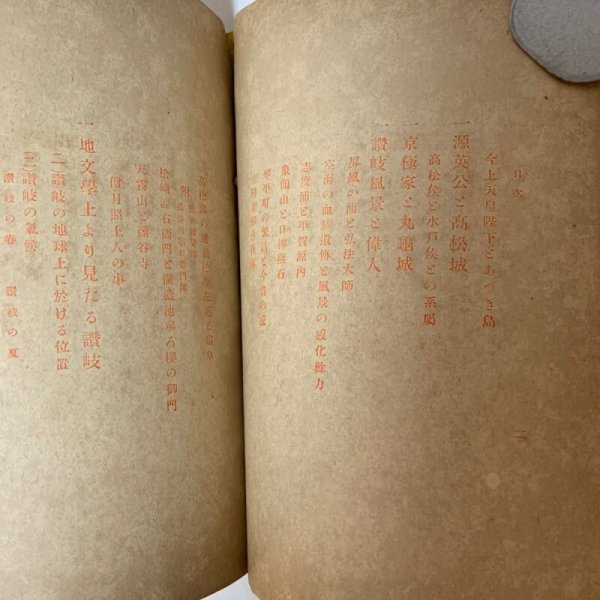 目次
今上天皇陛下とあづき島
一源英公と高松城
高松侯と水戸侯との系屬
一京極家と丸龜城
一讚岐風景と偉人
屏風の浦と弘法大師
空海の血族遺傳と風景の感化餘力
志度浦と平賀源內
象頭山と日柳燕石
琴平町の
二
高松
附
松崎澁右衛門と滿濃池
の御門
天霧山と
僧月照上人の
一地文學上より見たる讚岐
二讚岐の地球上に於ける位置
三讚岐の氣候
讚岐の春 讚岐の夏